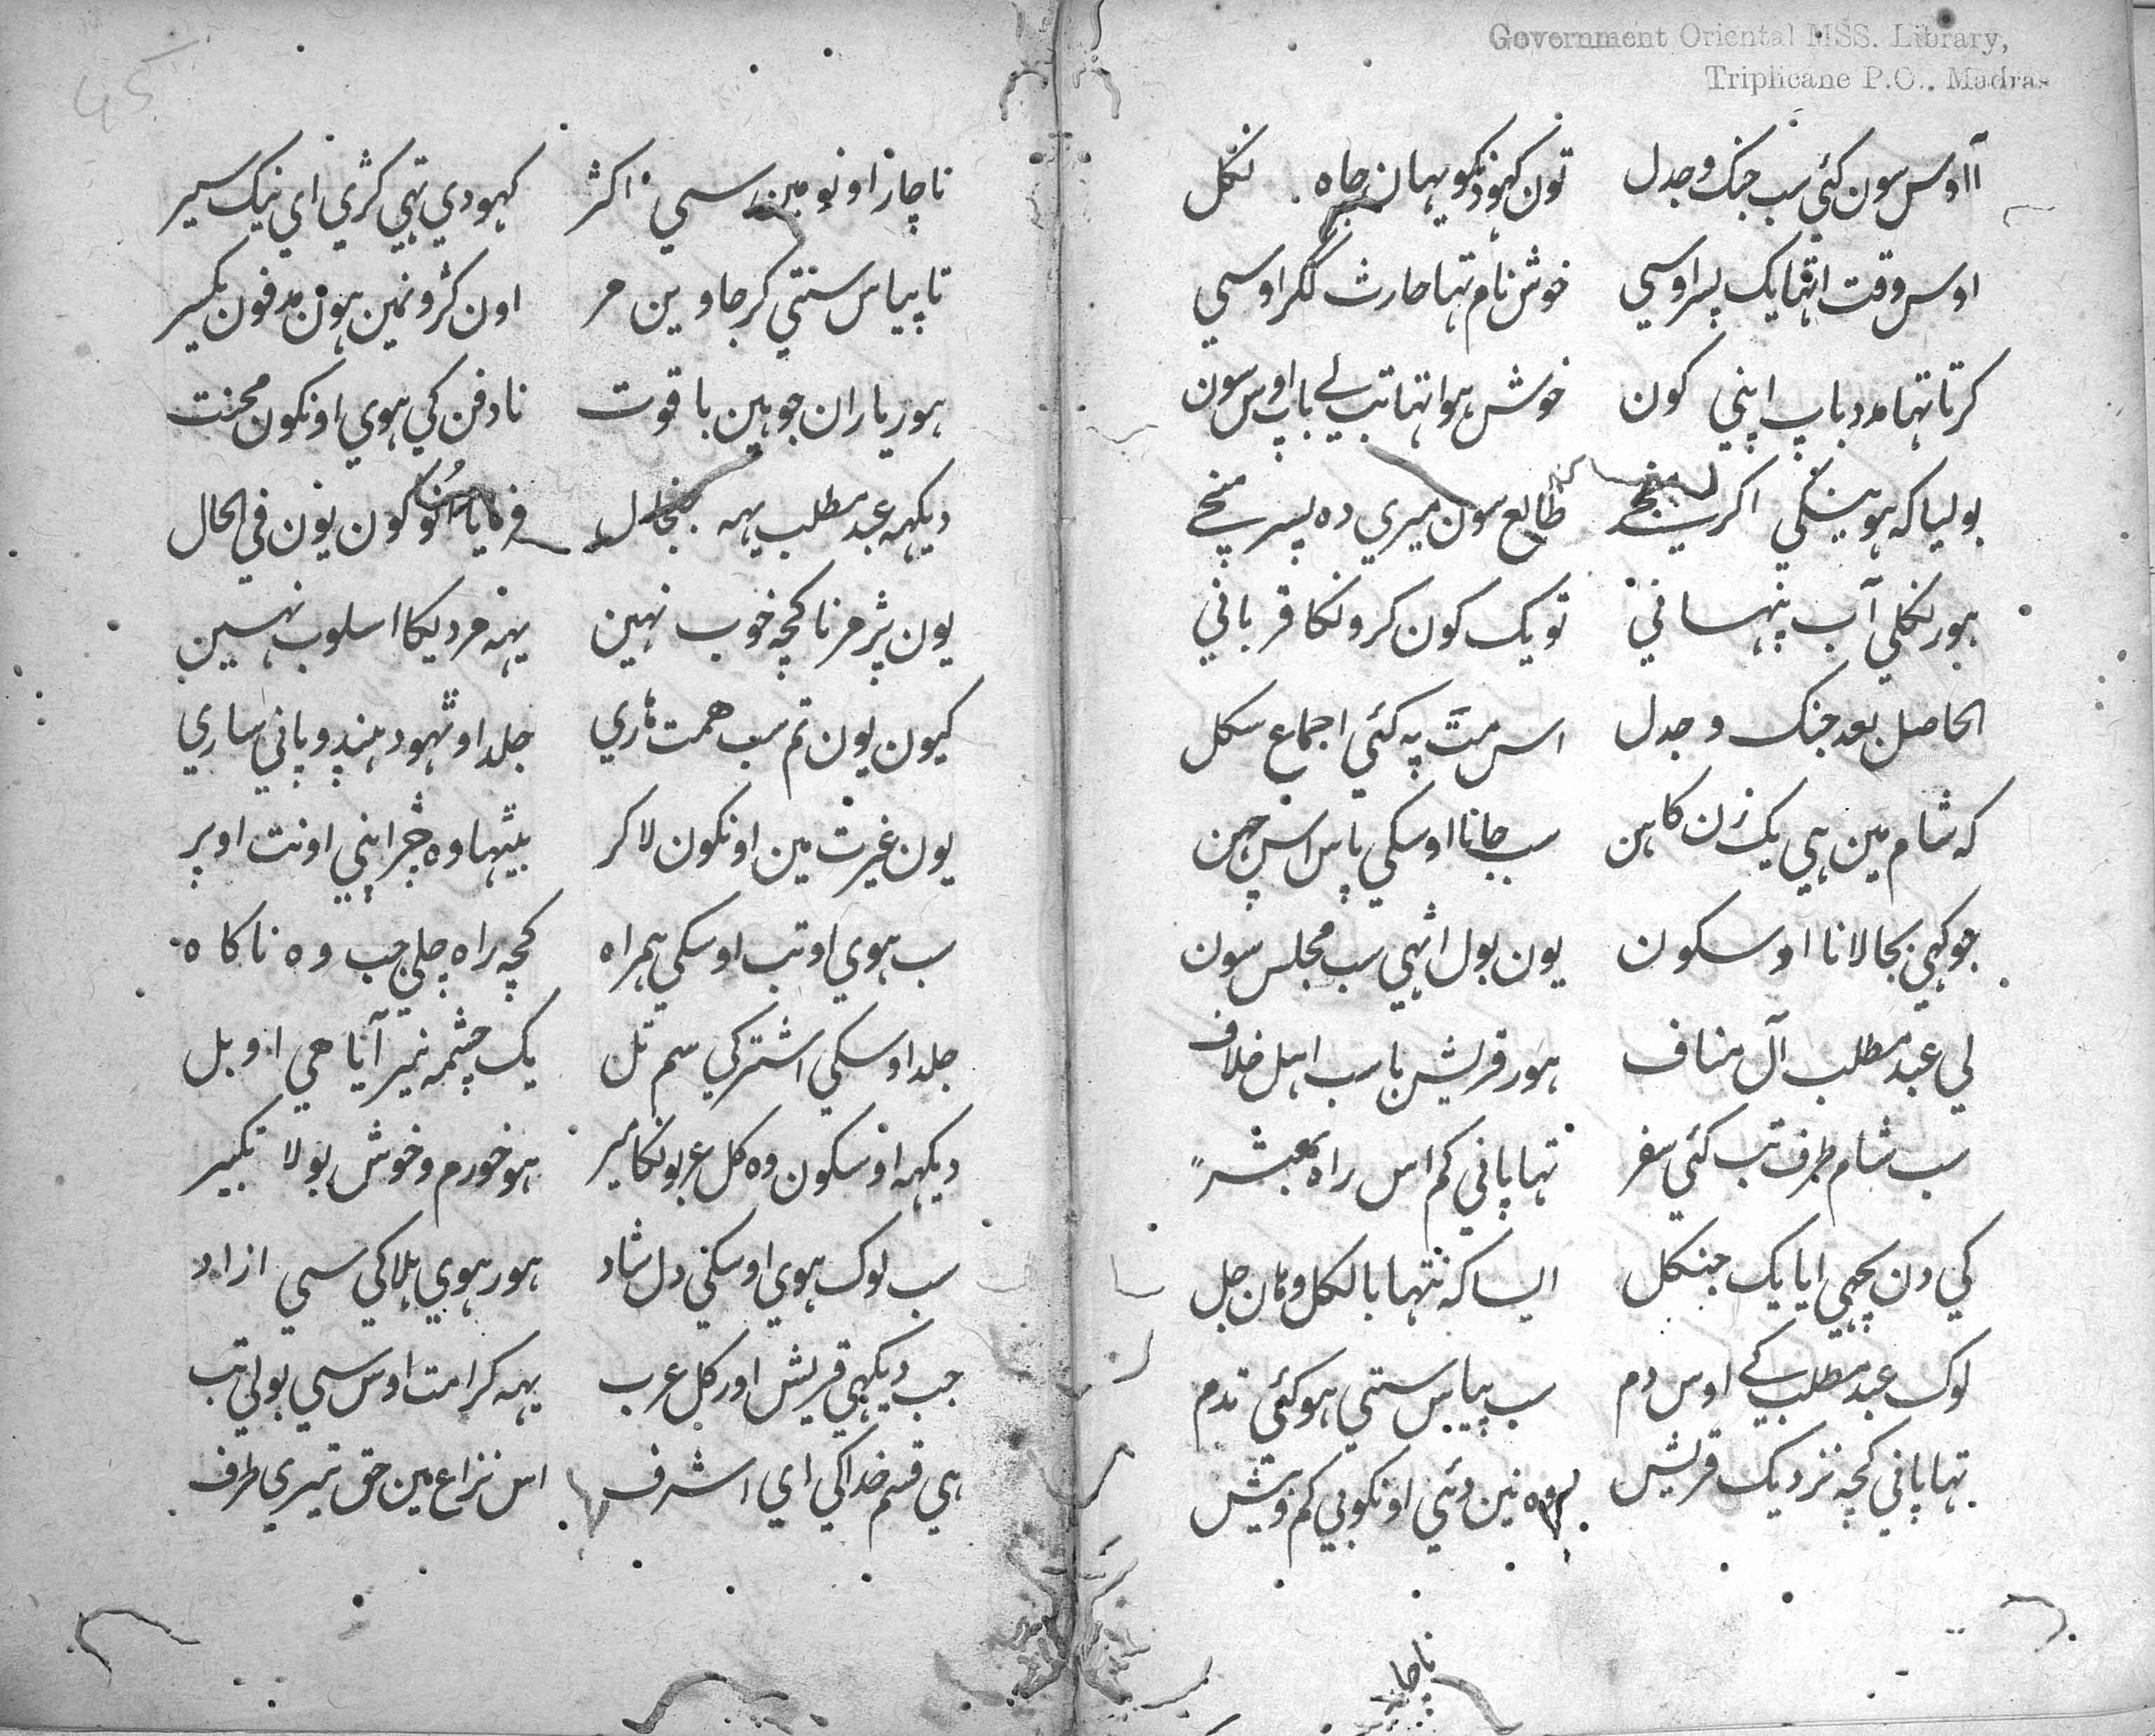 Government Oriental MSS. Library,
Triplicane P.O., Madras
آ اوس سون کئي سب جنك و جدل تون کهود نکو یہان چاہ نکل
اوس وقت اتہا یک پسر اوسي خوش نام تہا حارث مگر اوسي
کرتا تہا مدد باپ اپني کون خوش ہوا تہا تب لے باپ اوس سون
بولیا کہ ہوینکي اکر منجے طالع سون میري دہ پسر منجے
ہور نکلي آب پنہاني تو یک کون کرونکا قرباني
الحاصل بعد جنك و جدل اس مت پہ کئي اجماع سکل
کہ شام مین ہي یک زن کاہن سب جانا اوسکي پاس اس حین
جو کہي بجا لانا اوسکون یون بول اٹہي سب مجلس سون
لي عبد مطلب آل مناف ہور قریش با سب اہل خلاف
سب شام طرف تب کئي سفر تہا پاني کم اس راہ
کي دن پچہي ایا یک جنکل ایسا کہ نتہا بالکل وہان جل
لوک عبد مطلب کے اوس دم سب پیاس ستي ہو کئي ندم
تہا پاني کچہ نزدیک قریش وہ نین دئي اونکو بي کم و بیش
ناچار
45
ناچار اونو مین سي اکثر کہودي تہي کڑي اي نیک سیر
تا پیاس ستي کر جاوین مر اون کڑونمین ہون مدفون یکسر
ہور یاران جو ہین با قوت نا دفن کي ہوي اونکون محنت
دیکہہ عبد مطلب یہہ حال فرمایا انو کون یون في الحال
یون پڑ مرنا کچہ خوب نہین یہہ مردیکا اسلوب نہین
کیون یون تم سب ہمت ہاري جلد اوٹہو دہنڈو پاني ساري
یون غیرت مین اونکون لا کر بیٹہا وہ چڑ اپني اونٹ اوپر
سب ہوي او تب اوسکي ہمراہ کچہ راہ چلي جب وہ ناکاہ
جلد اوسکي اشتر کي سم تل یک چشمہ نیر آیا هي اوبل
دیکہہ اوسکون وہ کل عربونکا میر ہو خورم و خوش بولا تکبیر
سب لوک ہوي اوسکي دل شاد ہور ہوي ہلاکي سي ازاد
جب دیکہي قریش اور کل عرب یہہ کرامت اوس سي بولي تب
ہي قسم خدا کي اي اشرف اس نزاع مین حق تیري طرف